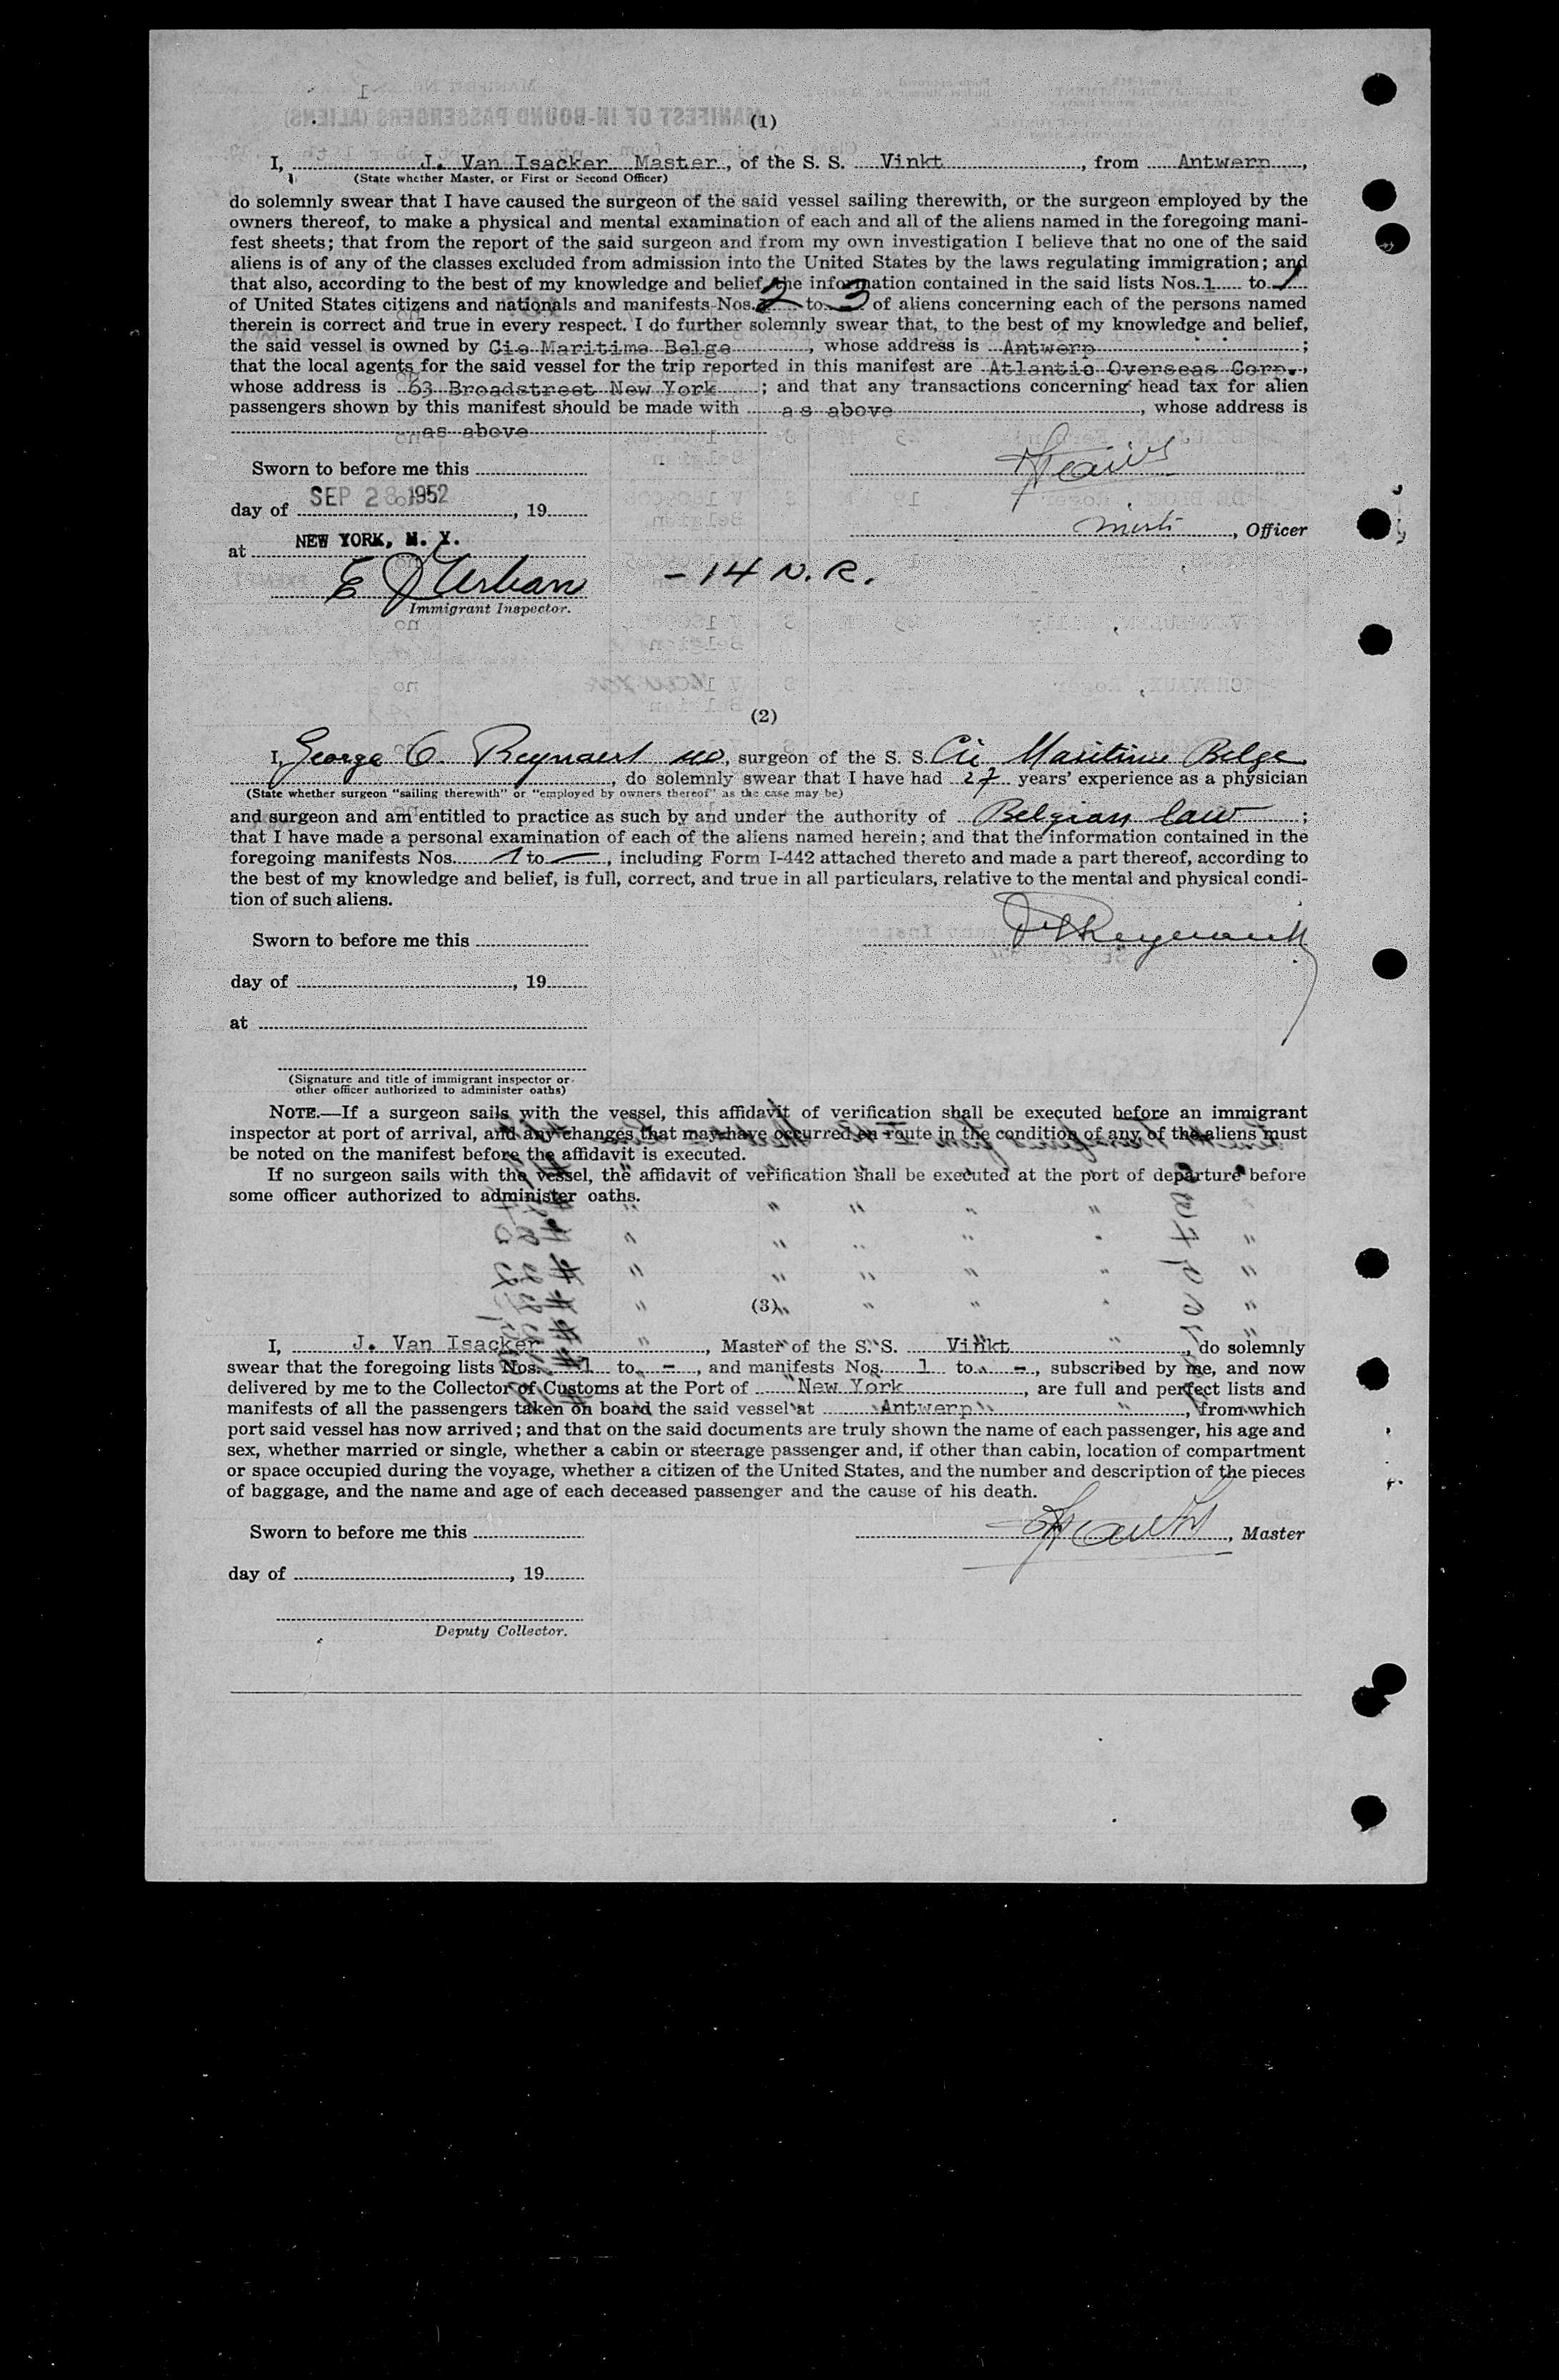 (1)
I, J. Van Isacker Master, of the S. S. Vinkt, from Antwerp,
(State whether Master, or First or Second Officer)
do solemnly swear that I have caused the surgeon of the said vessel sailing therewith, or the surgeon employed by the
owners thereof, to make a physical and mental examination of each and all of the aliens named in the foregoing mani-
fest sheets; that from the report of the said surgeon and from my own investigation I believe that no one of the said
aliens is of any of the classes excluded from admission into the United States by the laws regulating immigration; and
that also, according to the best of my knowledge and belief, the information contained in the said lists Nos. 1 to 1
of United States citizens and nationals and manifests Nos. 2 to 3 of aliens concerning each of the persons named
therein is correct and true in every respect. I do further solemnly swear that, to the best of my knowledge and belief,
the said vessel is owned by Cie Maritime Belge, whose address is Antwerp;
that the local agents for the said vessel for the trip reported in this manifest are Atlantic Overseas Corp.,
whose address is 63 Broadstreet New York; and that any transactions concerning head tax for alien
passengers shown by this manifest should be made with as above, whose address is
as above
Sworn to before me this
day of SEP 28 1952, 19
, Officer
at NEW YORK, N. Y.
E J Urban - 14 N. R.
Immigrant Inspector.
(2)
I, George C. Reynaert MD, surgeon of the S. S. Cie Maritime Belge
, do solemnly swear that I have had 27 years' experience as a physician
(State whether surgeon "sailing therewith" or "employed by owners thereof" as the case may be)
and surgeon and am entitled to practice as such by and under the authority of Belgian law;
that I have made a personal examination of each of the aliens named herein; and that the information contained in the
foregoing manifests Nos. 1 to —, including Form I-442 attached thereto and made a part thereof, according to
the best of my knowledge and belief, is full, correct, and true in all particulars, relative to the mental and physical condi-
tion of such aliens.
Sworn to before me this
day of , 19
at
(Signature and title of immigrant inspector or
other officer authorized to administer oaths)
NOTE.—If a surgeon sails with the vessel, this affidavit of verification shall be executed before an immigrant
inspector at port of arrival, and any changes that may have occurred en route in the condition of any of the aliens must
be noted on the manifest before the affidavit is executed.
If no surgeon sails with the vessel, the affidavit of verification shall be executed at the port of departure before
some officer authorized to administer oaths.
(3)
I, J. Van Isacker, Master of the S. S. Vinkt, do solemnly
swear that the foregoing lists Nos. 1 to -, and manifests Nos. 1 to -, subscribed by me, and now
delivered by me to the Collector of Customs at the Port of New York, are full and perfect lists and
manifests of all the passengers taken on board the said vessel at Antwerp, from which
port said vessel has now arrived; and that on the said documents are truly shown the name of each passenger, his age and
sex, whether married or single, whether a cabin or steerage passenger and, if other than cabin, location of compartment
or space occupied during the voyage, whether a citizen of the United States, and the number and description of the pieces
of baggage, and the name and age of each deceased passenger and the cause of his death.
Sworn to before me this
, Master
day of , 19
Deputy Collector.